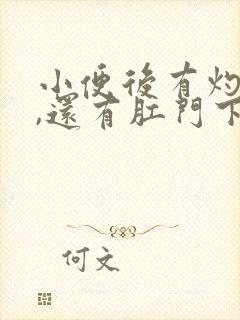 小便後有灼
,還有肛門下
何文